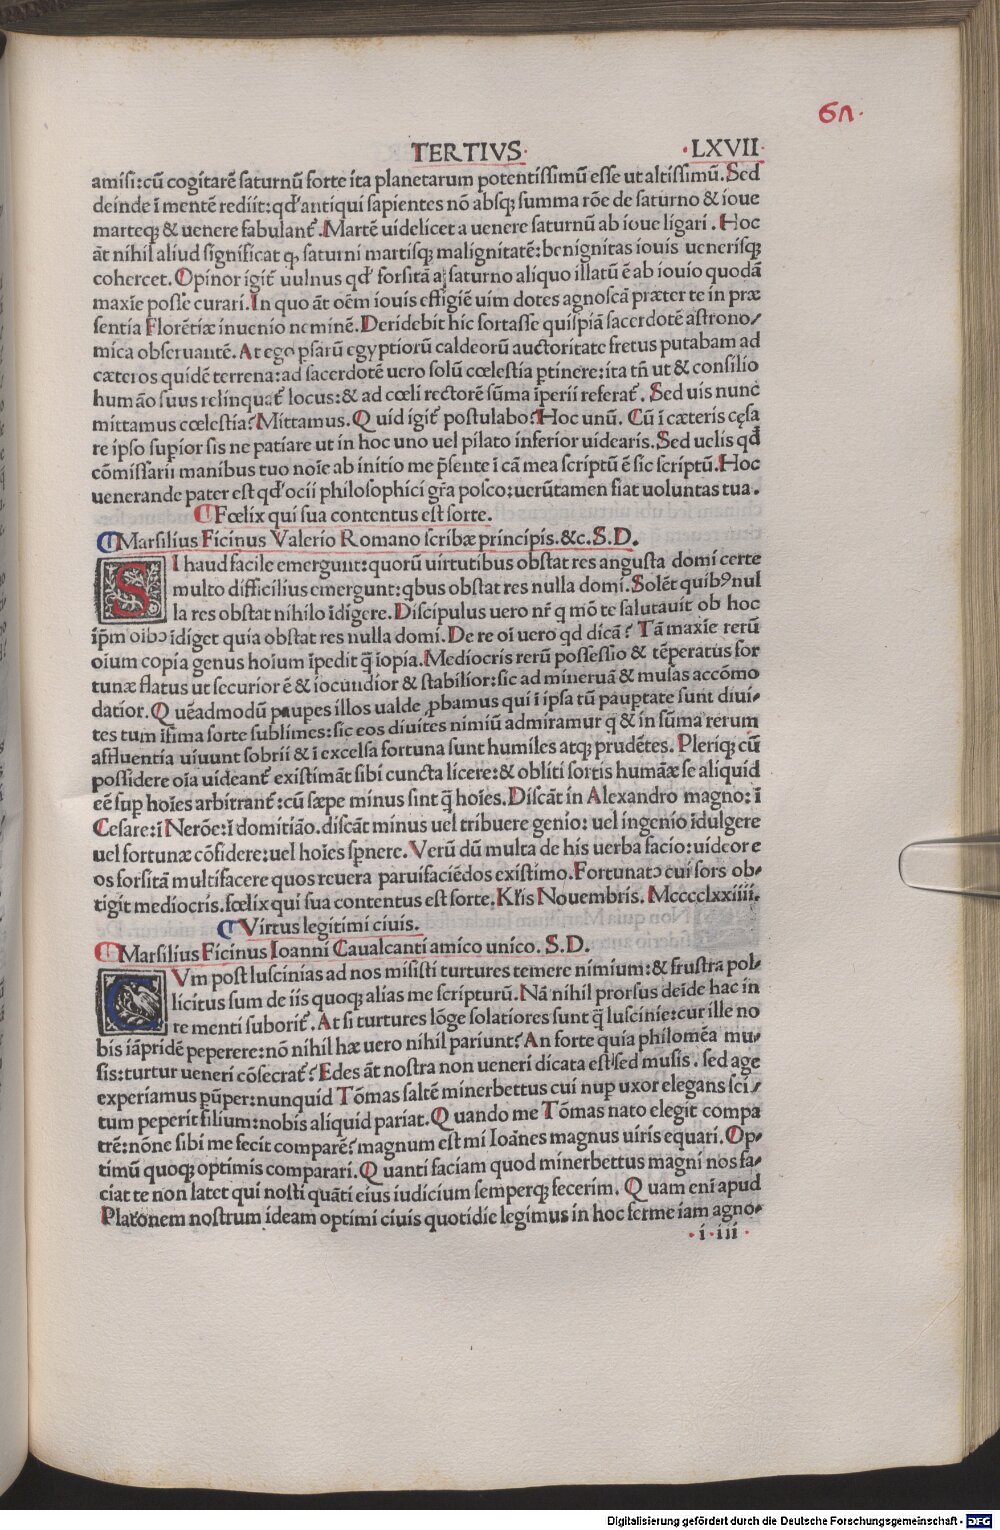 6Λ.
TERTIVS· ·LXVII·
amisi:cū cogitarē saturnū forte ita planetarum potentissimū esse ut altissimū.Sed
deinde ī mentē rediit:qđ antiqui sapientes nō absqꝫ summa rōe de saturno & ioue
marteqꝫ & uenere fabulant᷑.Martē uidelicet a uenere saturnū ab ioue ligari.Hoc
āt nihil aliud significat ꝙ saturni martisqꝫ malignitatē:benignitas iouis uenerisqꝫ
cohercet.Opinor igit᷑ uulnus qđ forsitā a saturno aliquo illatū ē ab iouio quodā
maxīe posse curari.In quo āt oēm iouis effigiē uim dotes agnoscā præter te in præ
sentia Florētiæ inuenio neminē.Deridebit hic fortasse quispiā sacerdotē astrono/
mica obseruantē.At ego psarū egyptiorū caldeorū auctoritate fretus putabam ad
cæteros quidē terrena:ad sacerdotē uero solū cœlestia ꝑtinere:ita tn̄ ut & consilio
humāo suus relinquat᷑ locus:& ad cœli rectorē sūma īperii referat᷑.Sed uis nunc
mittamus cœlestia?Mittamus.Quid igit᷑ postulabo?Hoc unū.Cū ī cæteris cęsa
re ipso supior sis ne patiare ut in hoc uno uel pilato inferior uidearis.Sed uelis qđ
cōmissarii manibus tuo noīe ab initio me p̄sente ī cā mea scriptū ē sic scriptū.Hoc
uenerande pater est qđ ocii philosophici gr̄a posco:uerūtamen fiat uoluntas tua.
¶Fœlix qui sua contentus est sorte.
¶Marsilius Ficinus Valerio Romano scribæ principis.&c.S.D.
SI haud facile emergunt:quorū uirtutibus obstat res angusta domi certe
multo difficilius emergunt:qbus obstat res nulla domi.Solēt quibꝰ nul
la res obstat nihilo īdigere.Discipulus uero nr̄ q mō te salutauit ob hoc
ip̄m oibꝰ īdiget quia obstat res nulla domi.De re oī uero qd dicā?Tā maxīe rerū
oium copia genus hoium īpedit q̄ īopia.Mediocris rerū possessio & tēperatus for
tunæ flatus ut securior ē & iocundior & stabilior:sic ad mineruā & musas accōmo
datior.Quēadmodū paupes illos ualde ꝓbamus qui ī ipsa tū pauptate sunt diui/
tes tum īfima sorte sublimes:sic eos diuites nimiū admiramur q & in sūma rerum
affluentia uiuunt sobrii & ī excelsa fortuna sunt humiles atqꝫ prudētes.Pleriqꝫ cū
possidere oīa uideant᷑ existimāt sibi cuncta licere:& obliti sortis humāæ se aliquid
eē sup hoīes arbitrant᷑:cū sæpe minus sint q̄ hoīes.Discāt in Alexandro magno:ī
Cesare:ī Nerōe:ī domitiāo.discāt minus uel tribuere genio:uel ingenio īdulgere
uel fortunæ cōfidere:uel hoīes sꝑnere.Verū dū multa de his uerba facio:uideor e
os forsitā multifacere quos reuera paruifaciēdos existimo.Fortunatꝰ cui sors ob/
tigit mediocris.fœlix qui sua contentus est sorte.Kl̄is Nouembris.Mcccclxxiiii.
¶Virtus legitimi ciuis.
¶Marsilius Ficinus Ioanni Caualcanti amico unico.S.D.
CVm post luscinias ad nos misisti turtures temere nimium:& frustra pol/
licitus sum de iis quoqꝫ alias me scripturū.Nā nihil prorsus deīde hac in
re menti suborit᷑.At si turtures lōge solatiores sunt q̄ luscinie:cur ille no
bis iāpridē peperere:nō nihil hæ uero nihil pariunt?An forte quia philomēa mu/
sis:turtur ueneri cōsecrat᷑?Edes āt nostra non ueneri dicata est sed musis.sed age
experiamus pū̄per:nunquid Tōmas saltē minerbettus cui nup uxor elegans sci/
tum peperit filium:nobis aliquid pariat.Quando me Tōmas nato elegit compa
trē:nōne sibi me fecit comparē?magnum est mi Ioānes magnus uiris equari.Op/
timū quoqꝫ optimis comparari.Quanti faciam quod minerbettus magni nos fa/
ciat te non latet qui nosti quāti eius iudicium semperqꝫ fecerim.Quam enī apud
Platonem nostrum ideam optimi ciuis quotidie legimus in hoc ferme iam agno/
·i·iii·
Digitalisierung gefördert durch die Deutsche Forschungsgemeinschaft - DFG